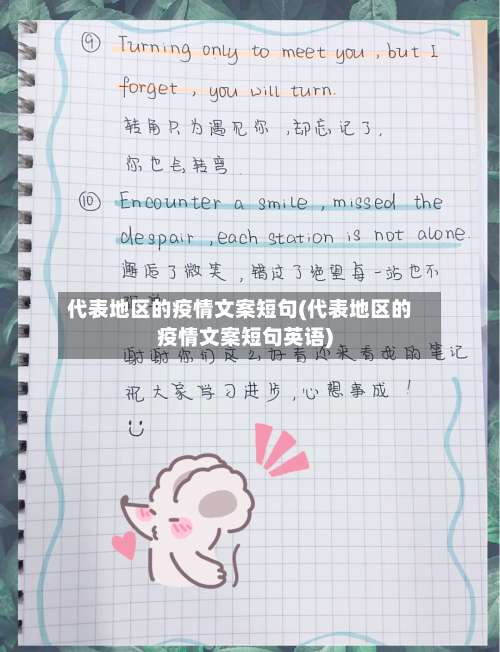 ⑨ Turning only to meet you , but I
forget , you will turn.
转角只为遇见你 ,却忘记了,
你也会转弯.
⑩ Encounter a smile , missed the
despair , each station is not alone.
邂逅了微笑 , 错过了绝望每一站也不
代表地区的疫情文案短句(代表地区的
疫情文案短句英语)
谢谢你们这么好看还来看我的笔记
祝大家学习进步 , 心想事成 !